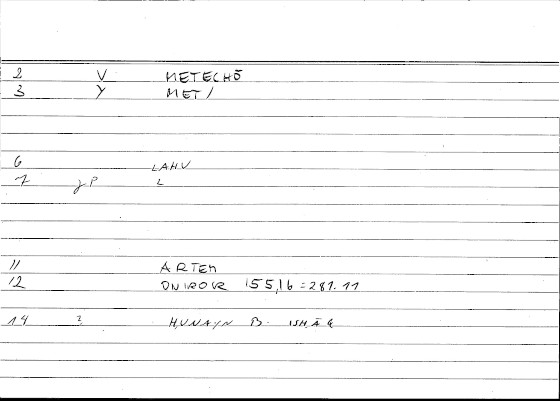 2 V METECHŌ
3 Y MET/
6 LAHV
7 jP L
11 ARTEM
12 ONIROCR 155,16 = 281.11
14 ? HUNAYN B. ISHĀQ